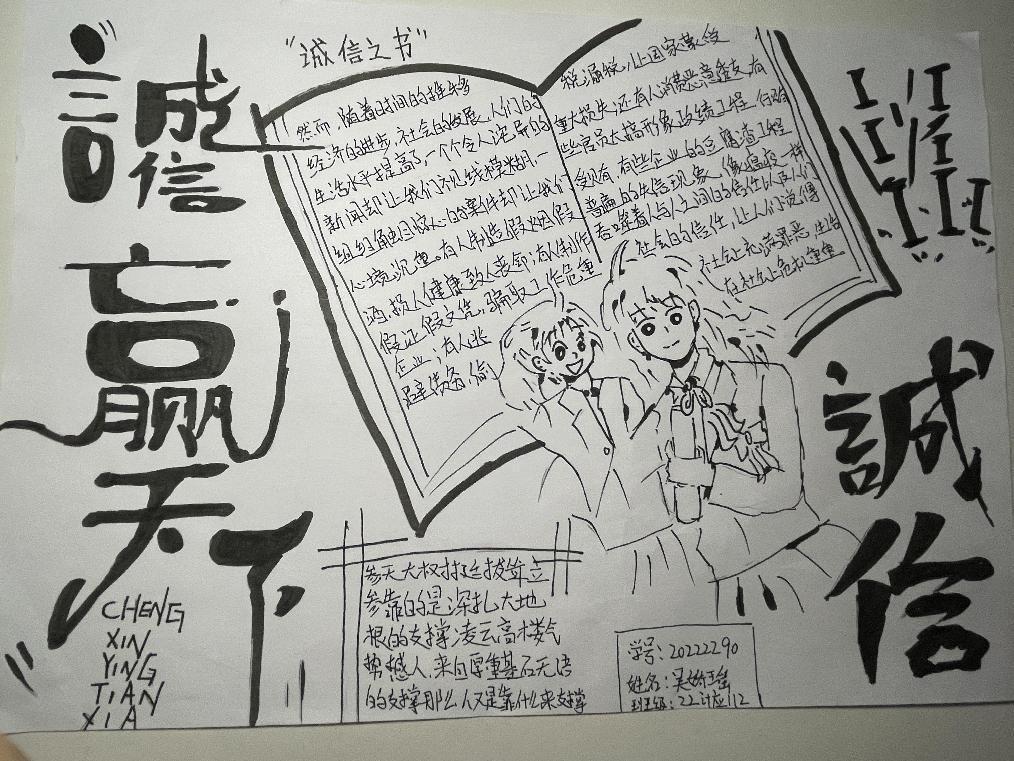 誠信
赢
天下
CHENG
XIN
YING
TIAN
XIA
"诚信之书"
然而,随着时间的推移
经济的进步,社会的发展,人们的
生活水平提高了,一个个令人误导的
新闻却让我们视线模糊,一
组组触目惊心的案件却让我们
心境沉重。有人制造假烟假
酒,损人健康致人丧命,有人制作
假证假文凭,骗取工作危害
企业,有人逃
避债务,偷
税漏税,让国家蒙受
重大损失,还有人消费恶意透支,有
些官员大搞形象政绩工程
有些企业的豆腐渣工程
普遍的失信现象,像瘟疫一样
吞噬着人与人之间的信任以及人们
社会的信任,让人们觉得
社会上充满罪恶,生活
在社会上危机重重
誠
信
参天大权挺拔耸立
参靠的是深扎大地
根的支撑凌云高楼气
势撼人,来自厚重基石无语
的支撑那么人又是靠什么来支撑
学号:20222290
姓名:吴
班级:22计应112